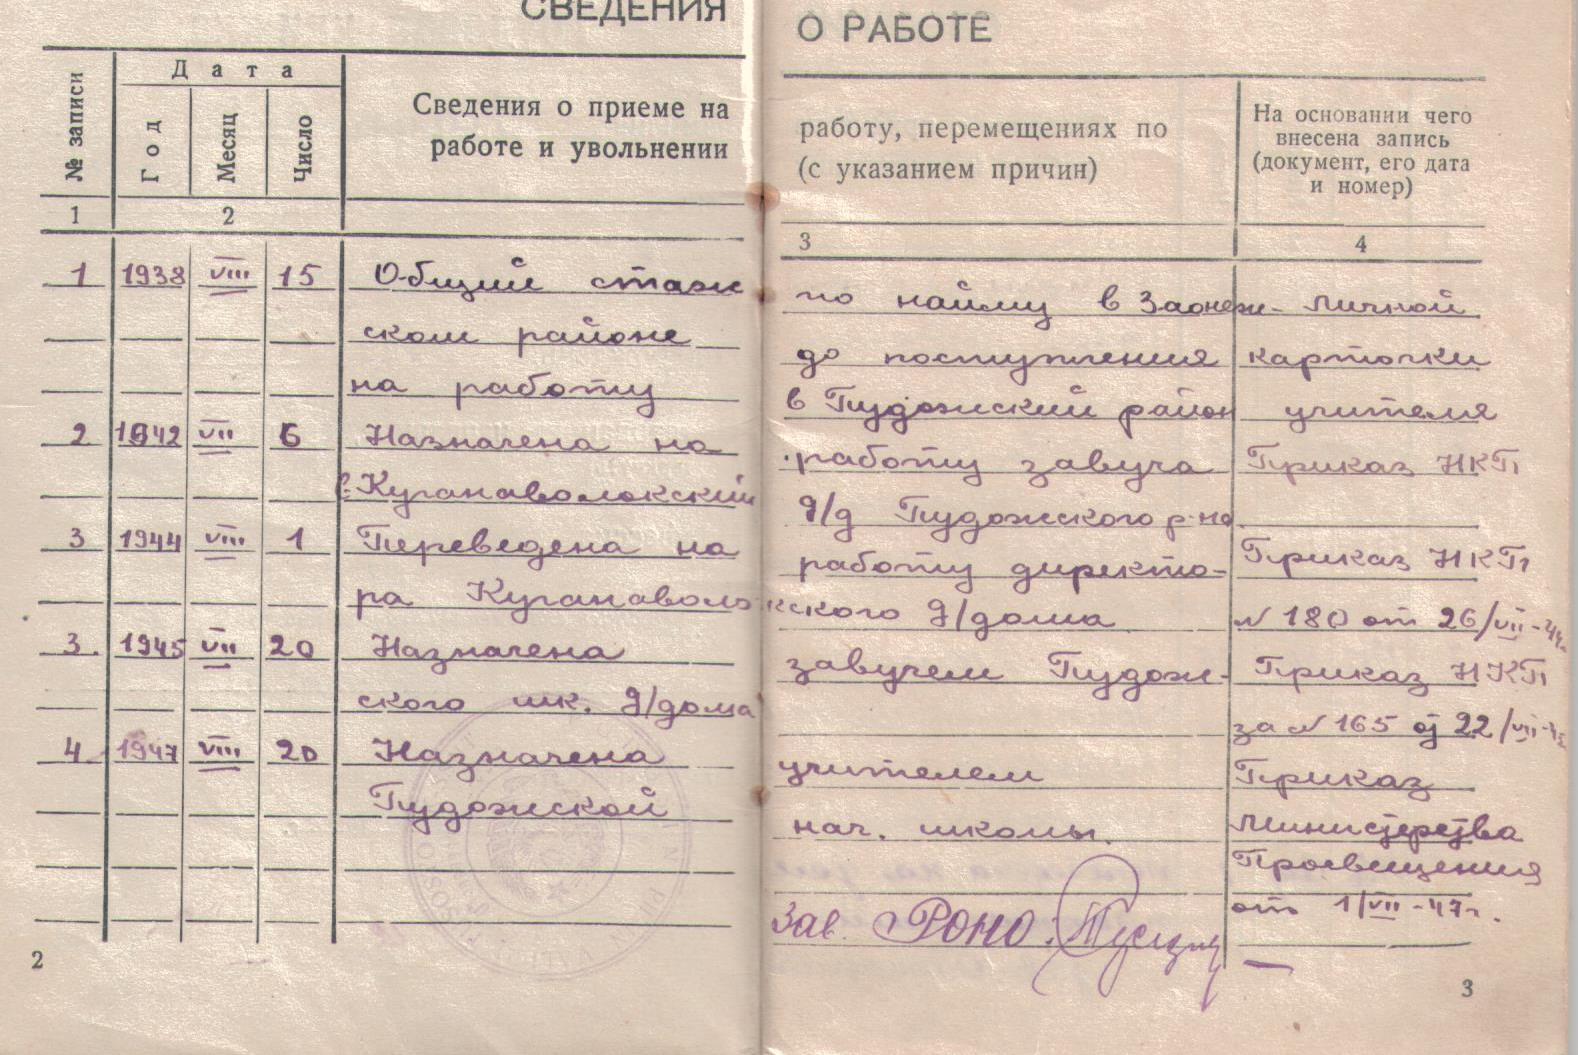 СВЕДЕНИЯ О РАБОТЕ
№ записи
Дата
Год
Месяц
Число
Сведения о приеме на работу, перемещениях по
работе и увольнении (с указанием причин)
На основании чего
внесена запись
(документ, его дата
и номер)
1 2 3 4
1 1938 VIII 15 Общий стаж по найму в Заонеж- Личной
ском районе до поступления карточки
на работу в Пудожский район учителя
2 1942 VII 6 Назначена на работу завуча Приказ НКП
в Куганаволокский д/д Пудожского р-на
3 1944 VIII 1 Переведена на работу директо- Приказ НКП
ра Куганаволокского д/дома № 180 от 26/VII-44г.
3. 1945 VII 20 Назначена завучем Пудож- Приказ НКП
ского шк. д/дома за № 165 от 22/VII-45
4 1947 VIII 20 Назначена учителем Приказ
Пудожской нач. школы. Министерства
Просвещения
Зав. РОНО. от 1/VII-47г.
2
3